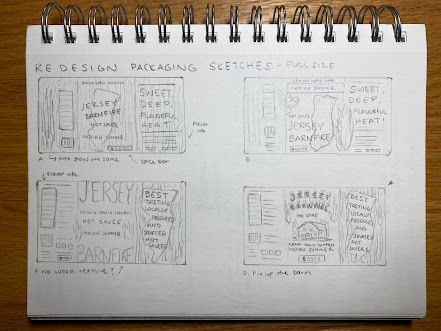 REDESIGN PACKAGING SKETCHES - FULL SIZE
JERSEY
BARNFIRE
HOT SAUCE
INDIAN SUMMER
SWEET,
DEEP,
FLAVORFUL
HEAT!
Flavor
info
A
Spice bar
INDIAN SUMMER
HOT SAUCE
JERSEY
BARNFIRE
SWEET,
DEEP,
FLAVORFUL
HEAT!
B.
Flavor info.
JERSEY
HOT SAUCE
INDIAN SUMMER
BARNFIRE
BEST
TASTING
LOCALLY
PRODUCED
AND
SOURCED
HOT
SAUCES
No wood texture?
JERSEY
BARNFIRE
HOT SAUCE
INDIAN SUMMER
BEST
TASTING
LOCALLY
PRODUCED
AND
SOURCED
HOT
SAUCES
D. Fix up the barn